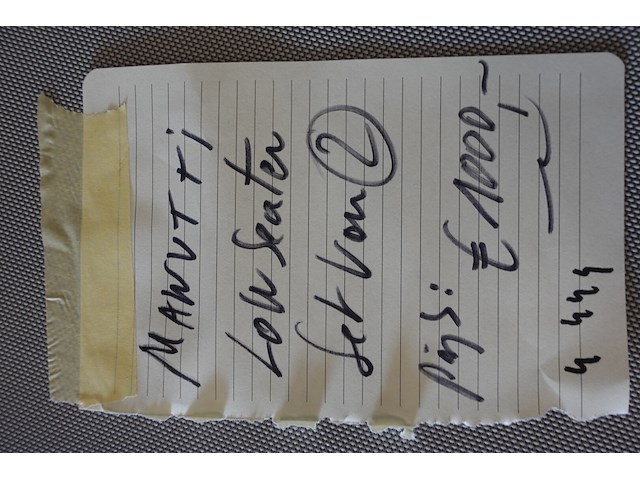 MANUTTI
Low Seater
Set von 2
prijs: € 1000,-